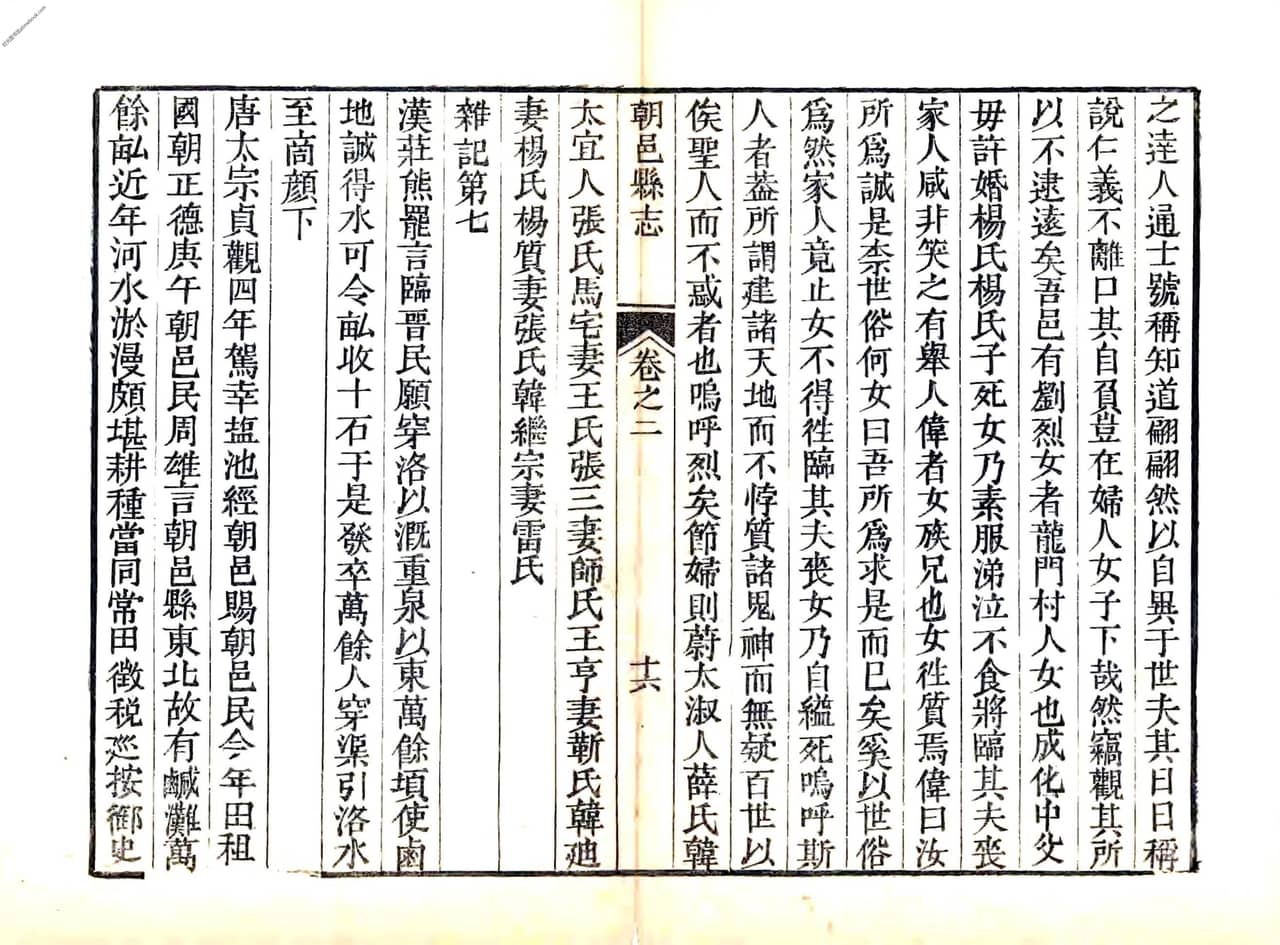 之達人通士號稱知道翩翩然以自異于世夫其日日稱
說仁義不離口其自負豈在婦人女子下哉然竊觀其所
以不逮遠矣吾邑有劉烈女者龍門村人女也成化中父
毋許婚楊氏楊氏子死女乃素服涕泣不食將臨其夫喪
家人咸非笑之有舉人偉者女族兄也女徃質焉偉曰汝
所爲誠是柰世俗何女曰吾所爲求是而已矣奚以世俗
爲然家人竟止女不得徃臨其夫喪女乃自縊死嗚呼斯
人者葢所謂建諸天地而不悖質諸鬼神而無疑百世以
俟聖人而不惑者也嗚呼烈矣節婦則蔚太淑人薛氏韓
朝邑縣志 卷之二 十六
太宜人張氏馬宅妻王氏張三妻師氏王亨妻靳氏韓廸
妻楊氏楊質妻張氏韓繼宗妻雷氏
雜記第七
漢莊熊羆言臨晋民願穿洛以溉重泉以東萬餘頃使鹵
地誠得水可令畝收十石于是發卒萬餘人穿渠引洛水
至商顏下
唐太宗貞觀四年駕幸盐池經朝邑賜朝邑民今年田租
國朝正德庚午朝邑民周雄言朝邑縣東北故有鹹灘萬
餘畝近年河水淤漫頗堪耕種當同常田徵税廵按御史